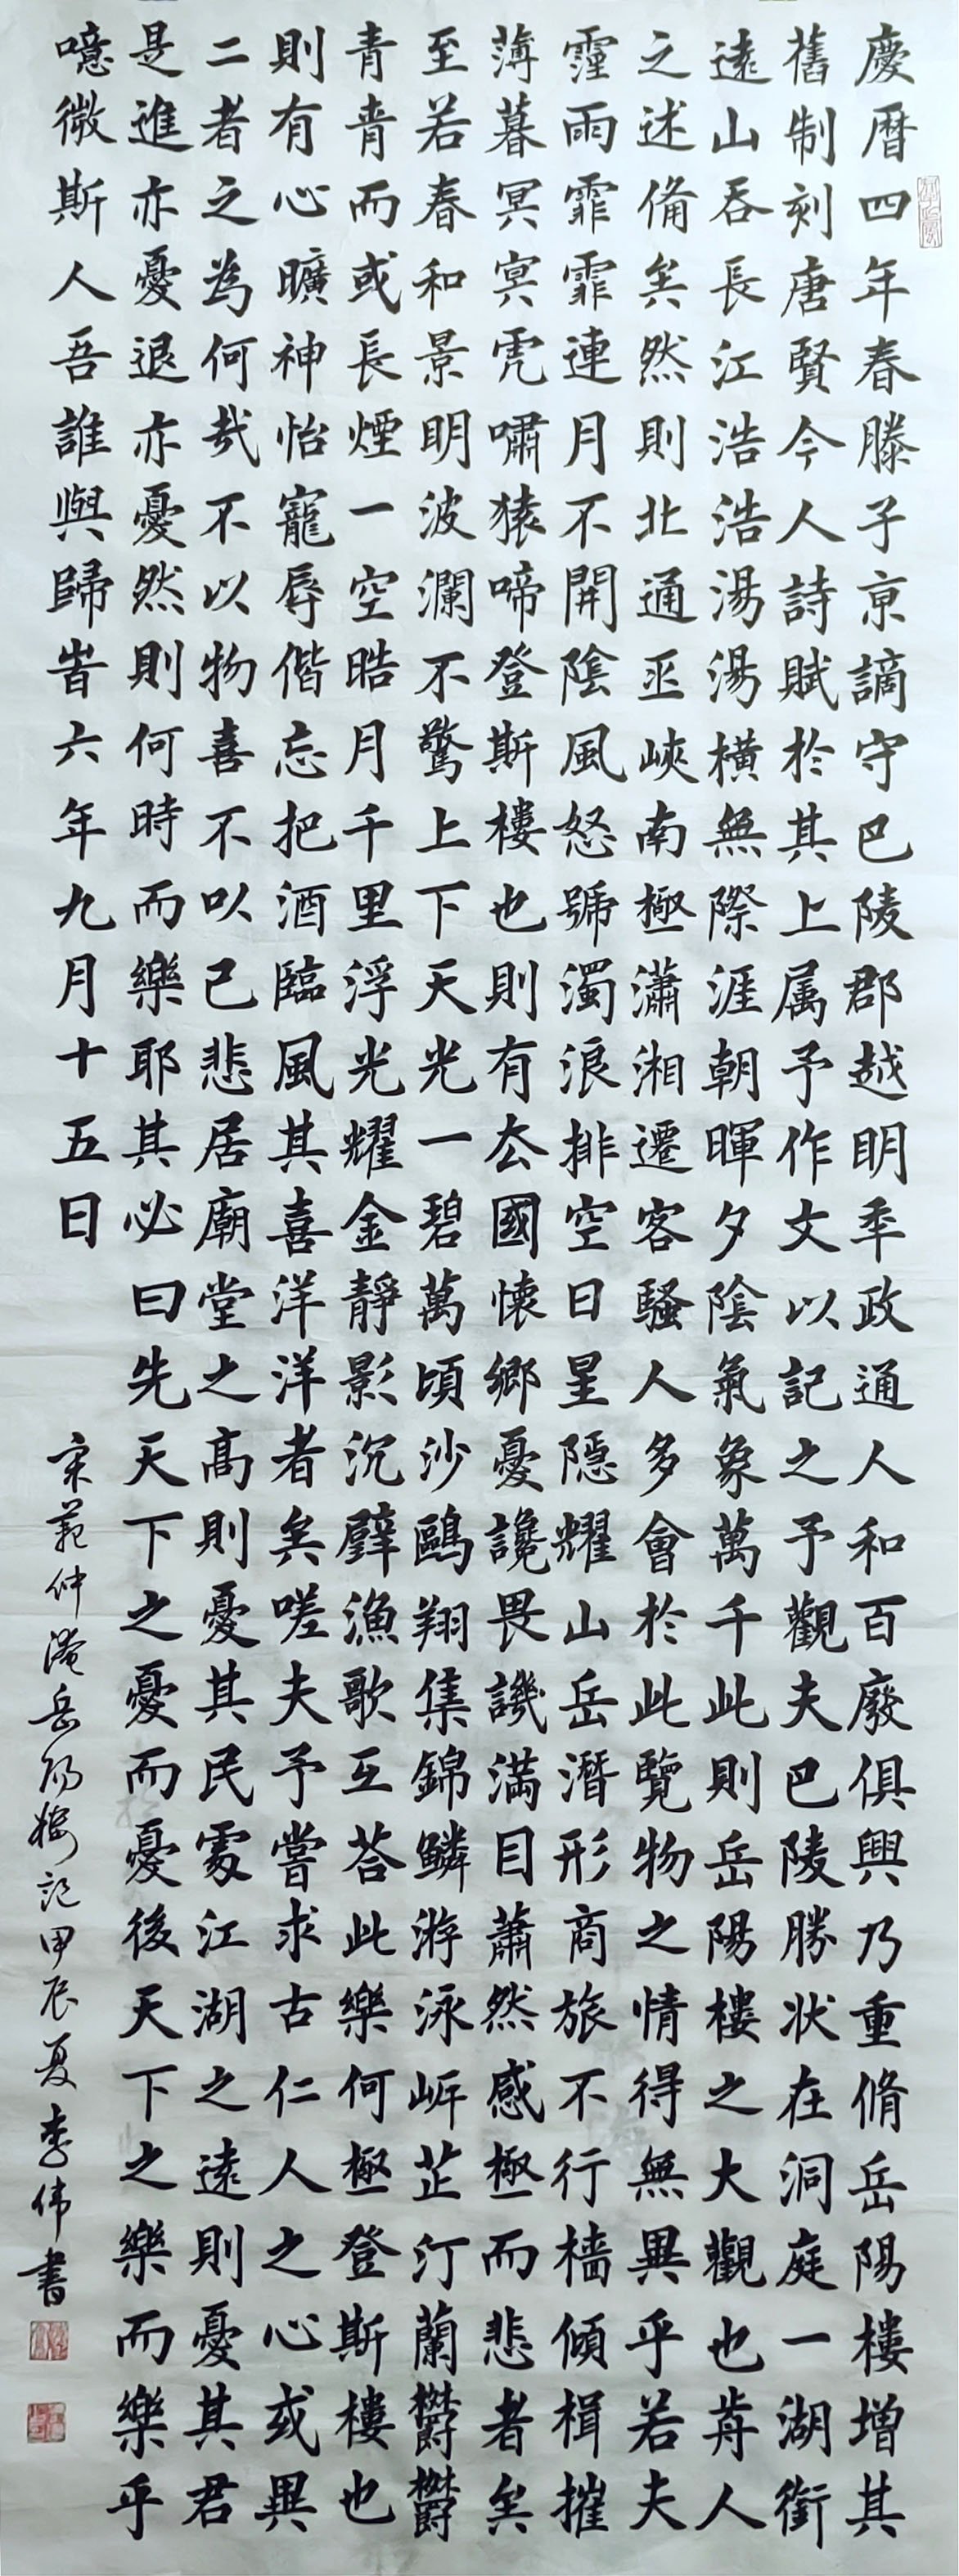 慶曆四年春滕子京謫守巴陵郡越明年政通人和百廢俱興乃重脩岳陽樓增其
舊制刻唐賢今人詩賦於其上属予作文以記之予觀夫巴陵勝状在洞庭一湖銜
遠山吞長江浩浩湯湯橫無際涯朝暉夕陰氣象萬千此則岳陽樓之大觀也歬人
之述備矣然則北通巫峽南極瀟湘遷客騷人多會於此覽物之情得無異乎若夫
霪雨霏霏連月不開陰風怒號濁浪排空日星隱耀山岳潛形商旅不行檣傾楫摧
薄暮冥冥虎嘯猿啼登斯樓也則有去國懷鄉憂讒畏譏滿目蕭然感極而悲者矣
至若春和景明波瀾不驚上下天光一碧萬頃沙鷗翔集錦鱗游泳岸芷汀蘭欝欝
青青而或長煙一空晧月千里浮光耀金靜影沉璧漁歌互荅此樂何極登斯樓也
則有心曠神怡寵辱偕忘把酒臨風其喜洋洋者矣嗟夫予嘗求古仁人之心或異
二者之為何哉不以物喜不以己悲居廟堂之高則憂其民處江湖之遠則憂其君
是進亦憂退亦憂然則何時而樂耶其必曰先天下之憂而憂後天下之樂而樂乎
噫微斯人吾誰與歸旹六年九月十五日
宋范仲淹岳陽樓記甲辰夏李伟書